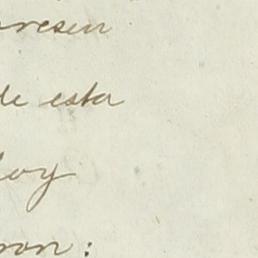 presen
de esta
doy
ron: